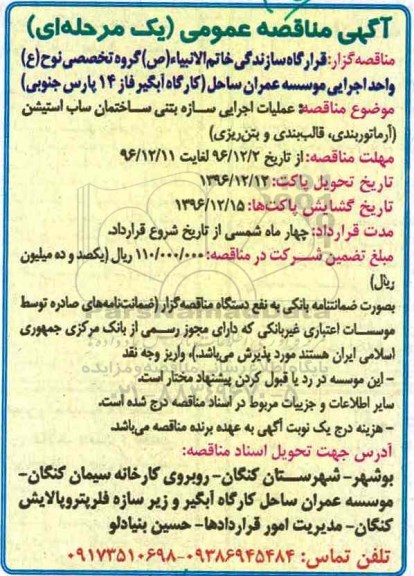 آگهی مناقصه عمومی (یک مرحله‌ای)
مناقصه‌گزار: قرارگاه سازندگی خاتم الانبیاء (ص) گروه تخصصی نوح (ع)
واحد اجرایی موسسه عمران ساحل (کارگاه آبگیر فاز ۱۴ پارس جنوبی)
موضوع مناقصه: عملیات اجرایی سازه بتنی ساختمان ساب استیشن
(آرماتوربندی، قالب‌بندی و بتن‌ریزی)
مهلت مناقصه: از تاریخ ۹۶/۱۲/۲ لغایت ۹۶/۱۲/۱۱
تاریخ تحویل پاکت: ۱۳۹۶/۱۲/۱۲
تاریخ گشایش پاکت‌ها: ۱۳۹۶/۱۲/۱۵
مدت قرارداد: چهار ماه شمسی از تاریخ شروع قرارداد.
مبلغ تضمین شرکت در مناقصه: ۱۱۰/۰۰۰/۰۰۰ ریال (یکصد و ده میلیون
ریال)
بصورت ضمانتنامه بانکی به نفع دستگاه مناقصه‌گزار (ضمانت‌نامه‌های صادره توسط
موسسات اعتباری غیربانکی که دارای مجوز رسمی از بانک مرکزی جمهوری
اسلامی ایران هستند مورد پذیرش می‌باشد)، واریز وجه نقد
- این موسسه در رد یا قبول کردن پیشنهاد مختار است.
سایر اطلاعات و جزییات مربوط در اسناد مناقصه درج شده است.
- هزینه درج یک نوبت آگهی به عهده برنده مناقصه می‌باشد.
آدرس جهت تحویل اسناد مناقصه:
بوشهر- شهرستان کنگان- روبروی کارخانه سیمان کنگان-
موسسه عمران ساحل کارگاه آبگیر و زیر سازه فلرپتروپالایش
کنگان- مدیریت امور قراردادها- حسین بنیادلو
تلفن تماس: ۰۹۳۸۶۹۴۵۴۸۴-۰۹۱۷۳۵۱۰۶۹۸